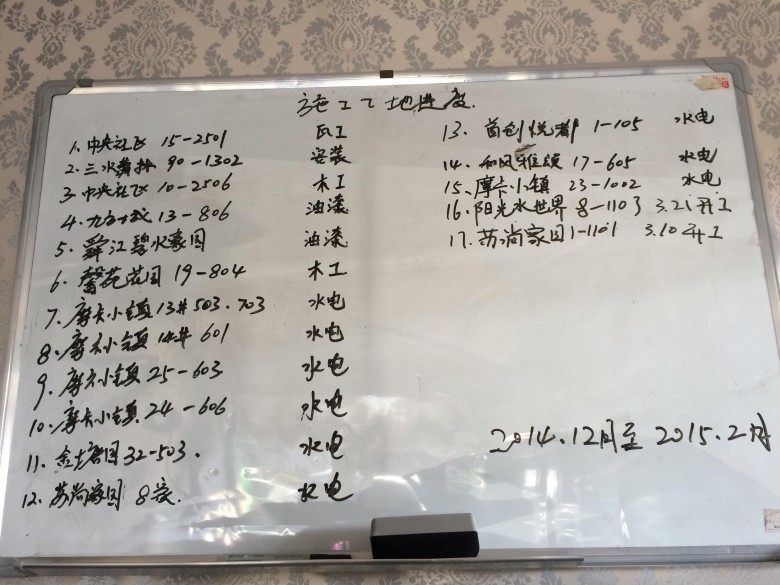 施工工地进度
1. 中央社区 15-2501 瓦工
2. 三水舞林 90-1302 安装
3. 中央社区 10-2506 木工
4. 九方 13-806 油漆
5. 舜江碧水豪园 油漆
6. 馨苑花园 19-804 木工
7. 摩卡小镇 13# 503.703 水电
8. 摩卡小镇 14# 601 水电
9. 摩卡小镇 25-603 水电
10. 摩卡小镇 24-606 水电
11. 金 园 32-503. 水电
12. 苏尚家园 8 水电
13. 首创悦都 1-105 水电
14. 和风雅颂 17-605 水电
15. 摩卡小镇 23-1002 水电
16. 阳光水世界 8-1103 3.21开工
17. 苏尚家园 1-1101 3.10开工
2014.12月至 2015.2月